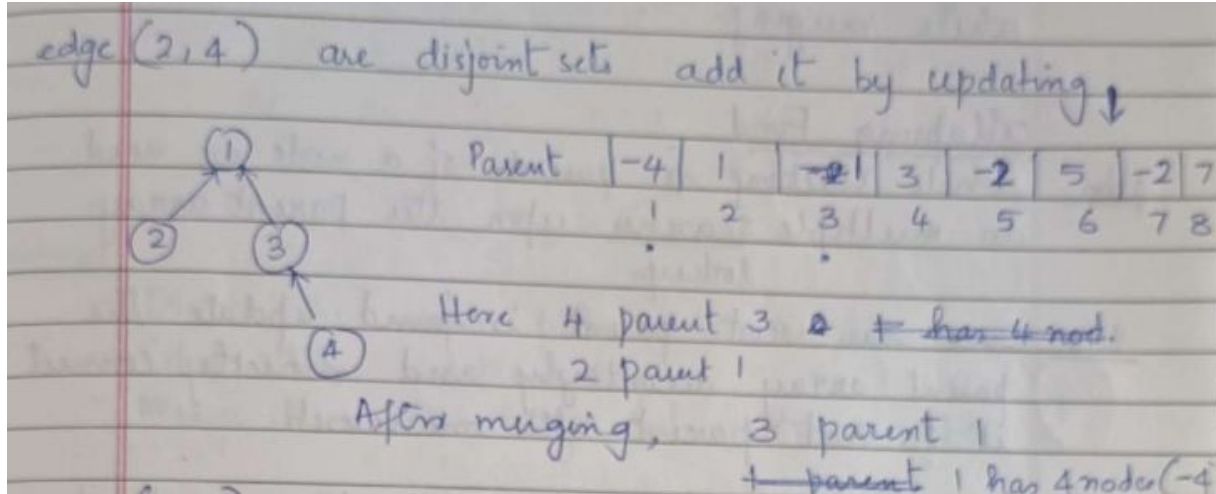 edge (2,4) are disjoint sets add it by updating ↓
1
Parent | -4 | 1 | 1 | 3 | -2 | 5 | -2 | 7
1 2 3 4 5 6 7 8
2 3
Here 4 parent 3 has 4 nod.
4
2 parent 1
After merging, 3 parent 1
parent 1 has 4 nodes (-4